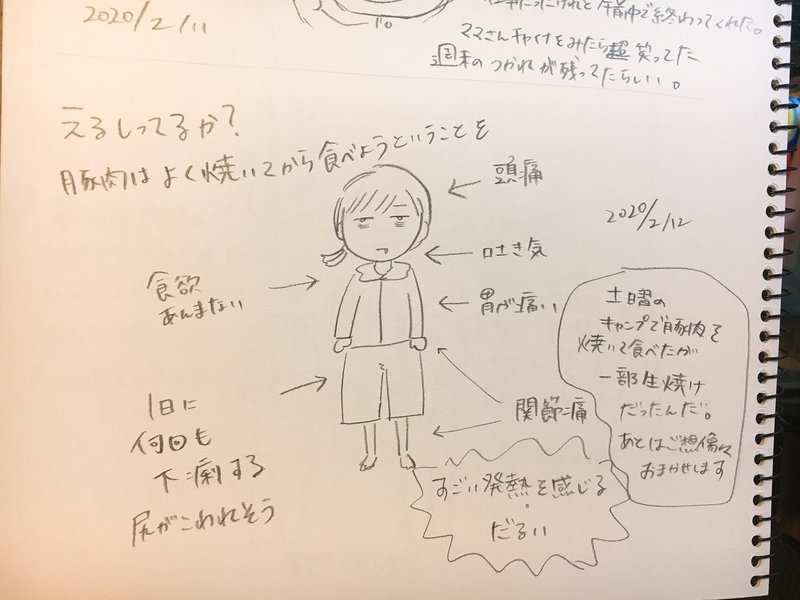 2020/2/11
午前中で終わってくれた。
ママさんチャイナをみたら超笑ってた
週末のつかれが残ってたらしい。
えるしってるか?
豚肉はよく焼いてから食べようということを
頭痛
2020/2/12
吐き気
食欲
あんまない
胃が痛い
土曜の
キャンプで豚肉を
焼いて食べたが
一部生焼け
だったんだ。
あとはご想像に
おまかせします
関節痛
1日に
何回も
下痢する
尻がこわれそう
すごい発熱を感じる
だるい